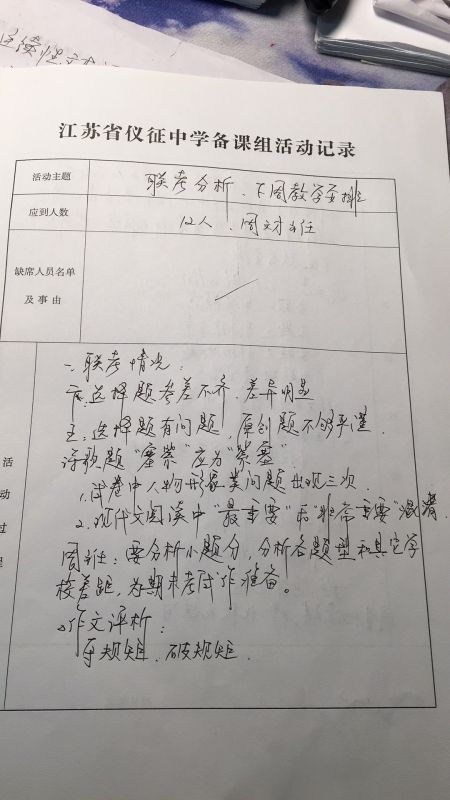 江苏省仪征中学备课组活动记录
活动主题 联考分析、下周教学安排
应到人数 12人、周文才主任
缺席人员名单
及事由
活
动
过
程
一、联考情况:
选择题参差不齐,差异明显
王:选择题有问题,原创题不够严谨.
诗歌题"塞紫"应为"紫塞"
1.试卷中人物形象类问题出现三次.
2.现代文阅读中"最重要"和"非常重要"混淆.
周主任:要分析小题分,分析各题型和其它学
校差距,为期末考试作准备。
作文评析:
守规矩、破规矩.